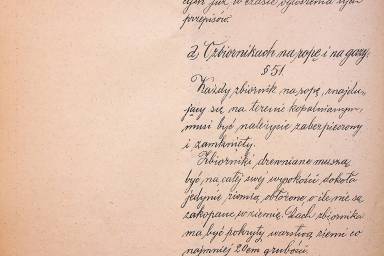 cym już w czasie ogłoszenia tych
przepisów.
d, O zbiornikach na ropę i na gazy.
§ 51.
Każdy zbiornik na ropę, znajdu-
jący się na terenie kopalnianym
musi być należycie zabezpieczony
i zamknięty.
Zbiorniki drewniane muszą
być, na całej swej wysokości, dokoła
jedynie ziemią obłożone, o ile nie są
zakopane w ziemię. Dach zbiornika
ma być pokryty warstwą ziemi co
najmniej 20 cm grubości.